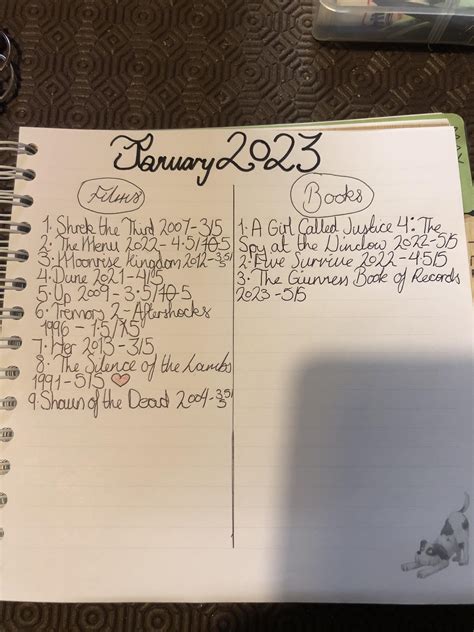 January 2023
Films
1. Shrek the Third 2007-3/5
2. The Menu 2022-4.5/5
3. Moonrise Kingdom 2012-3.5/5
4. Dune 2021-4/5
5. Up 2009-3.5/5
6. Tremors 2-Aftershocks
1996-1.5/5
7. Her 2013-3/5
8. The Silence of the Lambs
1991-5/5
9. Shaun of the Dead 2004-3.5/5
Books
1. A Girl Called Justice 4: The
Spy at the Window 2022-5/5
2. Five Survive 2022-4.5/5
3. The Guinness Book of Records
2023-5/5